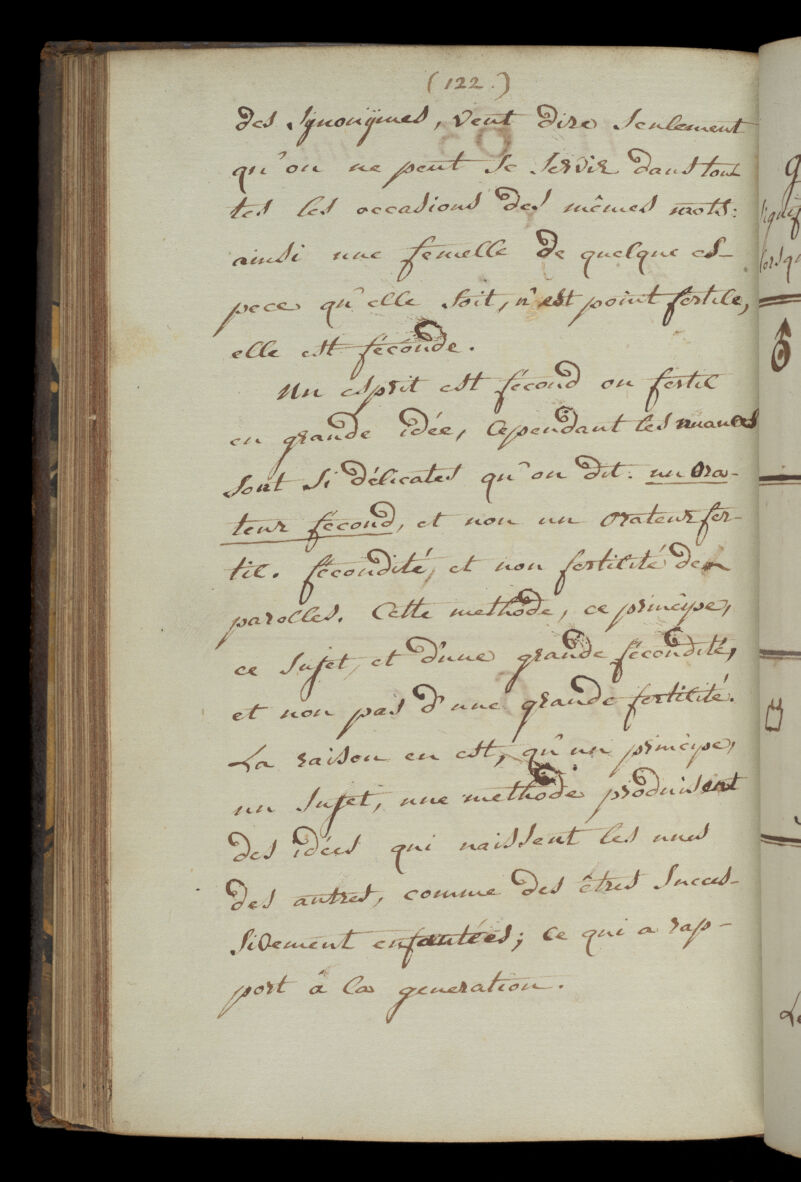 (122.)
des synonÿmes, veut dire seulement
qu'on ne peut se servir dans tou-
tes les occasions des mêmes mots:
ainsi une femelle de quelque es-
pece qu'elle soit, n'est point fertile,
elle est féconde.
Un esprit est fécond ou fertil
en grande idée, cependant les nuances
sont si délicates qu'on dit: un ora-
teur fécond, et non un orateur fer-
til. fécondité, et non fertilité de
parolles. Cette methôde, ce principe,
ce sujet, et d'une grande fécondité,
et non pas d'une grande fertilité.
La raison en est, qu'un principe,
un sujet, une methôde produisent
des idées qui naissent les unes
des autres, comme des êtres succes-
sivement enfantées; ce qui a rap-
port à la generation.